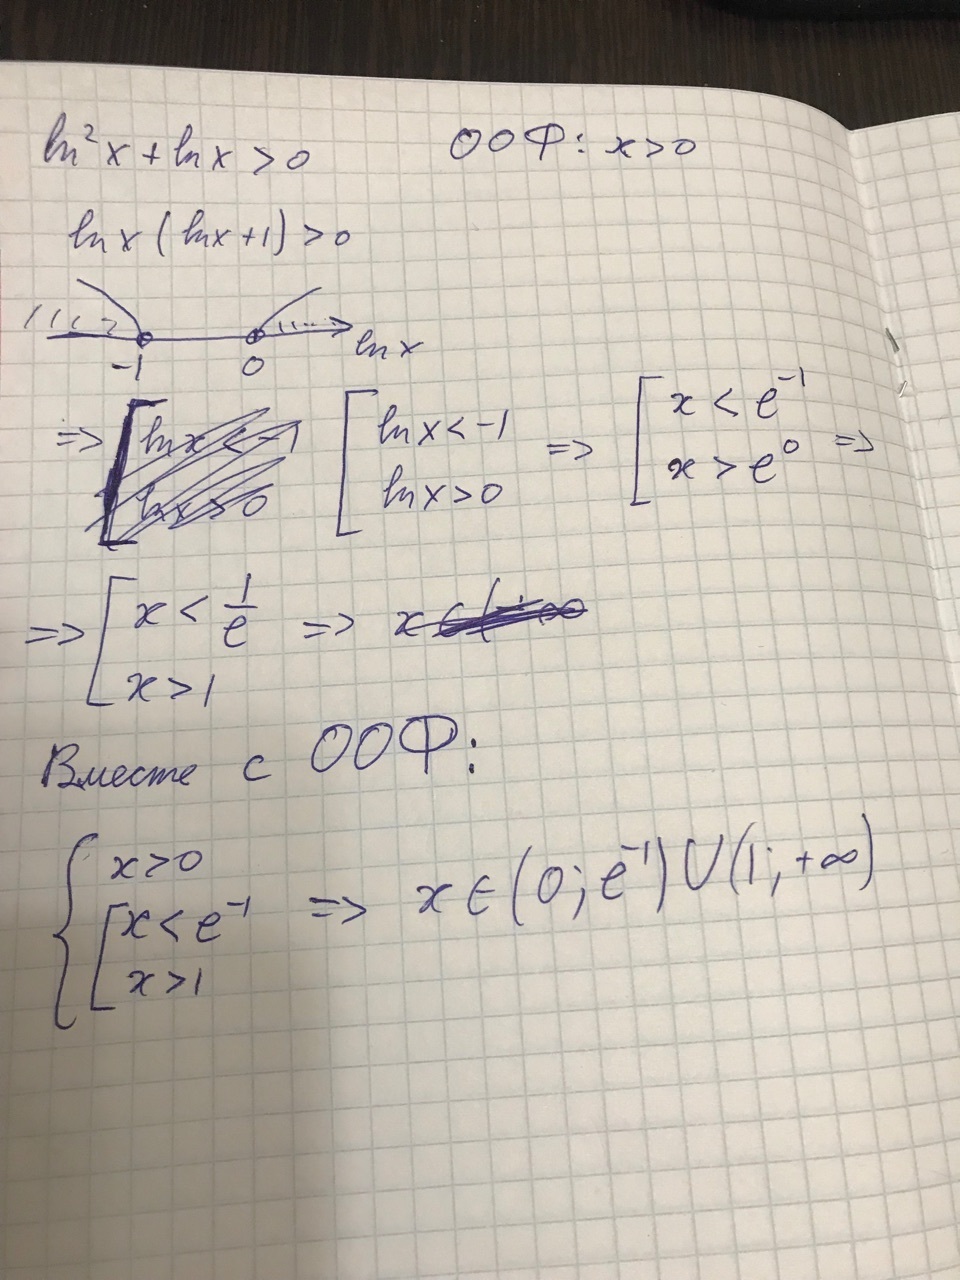 ln²x + lnx > 0   ООФ: x > 0
lnx (lnx + 1) > 0
-1   0   lnx
=> [ lnx < -1   [ lnx < -1   => [ x < e⁻¹   =>
lnx > 0   lnx > 0   x > e⁰
=> [ x < 1/e   => x ∈ (-∞
x > 1
Вместе с ООФ:
{ x > 0
[ x < e⁻¹   => x ∈ (0; e⁻¹) ∪ (1; +∞)
x > 1